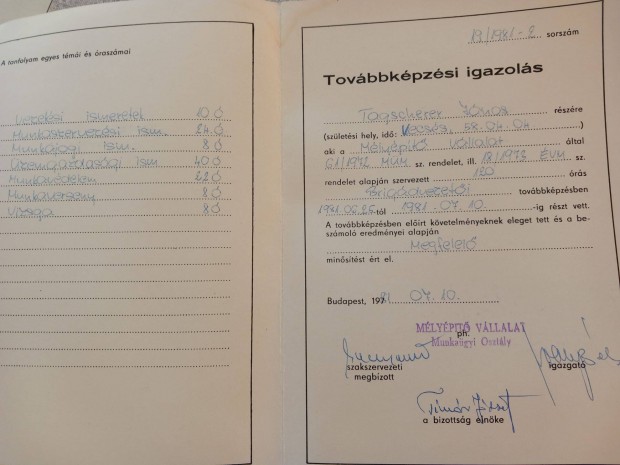 A tanfolyam egyes témái és óraszámai
Vezetési Ismeretek 10 Ó
Munkaszervezési Ism. 24 Ó
Munkajogi Ism. 8 Ó
Üzemgazdasági Ism 40 Ó
Munkavédelem 22 Ó
Munkaverseny 8 Ó
Vizsga 8 Ó
19/1981-2 sorszám
Továbbképzési igazolás
Tagscherer János részére
(születési hely, idő: Vecsés, 58.04.04 )
aki a Mélyépítő Vállalat által
6/1972 MüM sz. rendelet, ill. 18/1973 ÉVM sz.
rendelet alapján szervezett 120 órás
Brigádvezetői továbbképzésben
1981.06.25 tól 1981.07.10. -ig részt vett.
A továbbképzésben előírt követelményeknek eleget tett és a be-
számoló eredményei alapján
Megfelelő
minősítést ért el.
Budapest, 1981 07.10.
MÉLYÉPÍTŐ VÁLLALAT
ph.
Munkaügyi Osztály
szakszervezeti
megbízott
igazgató
Tímár József
a bizottság elnöke